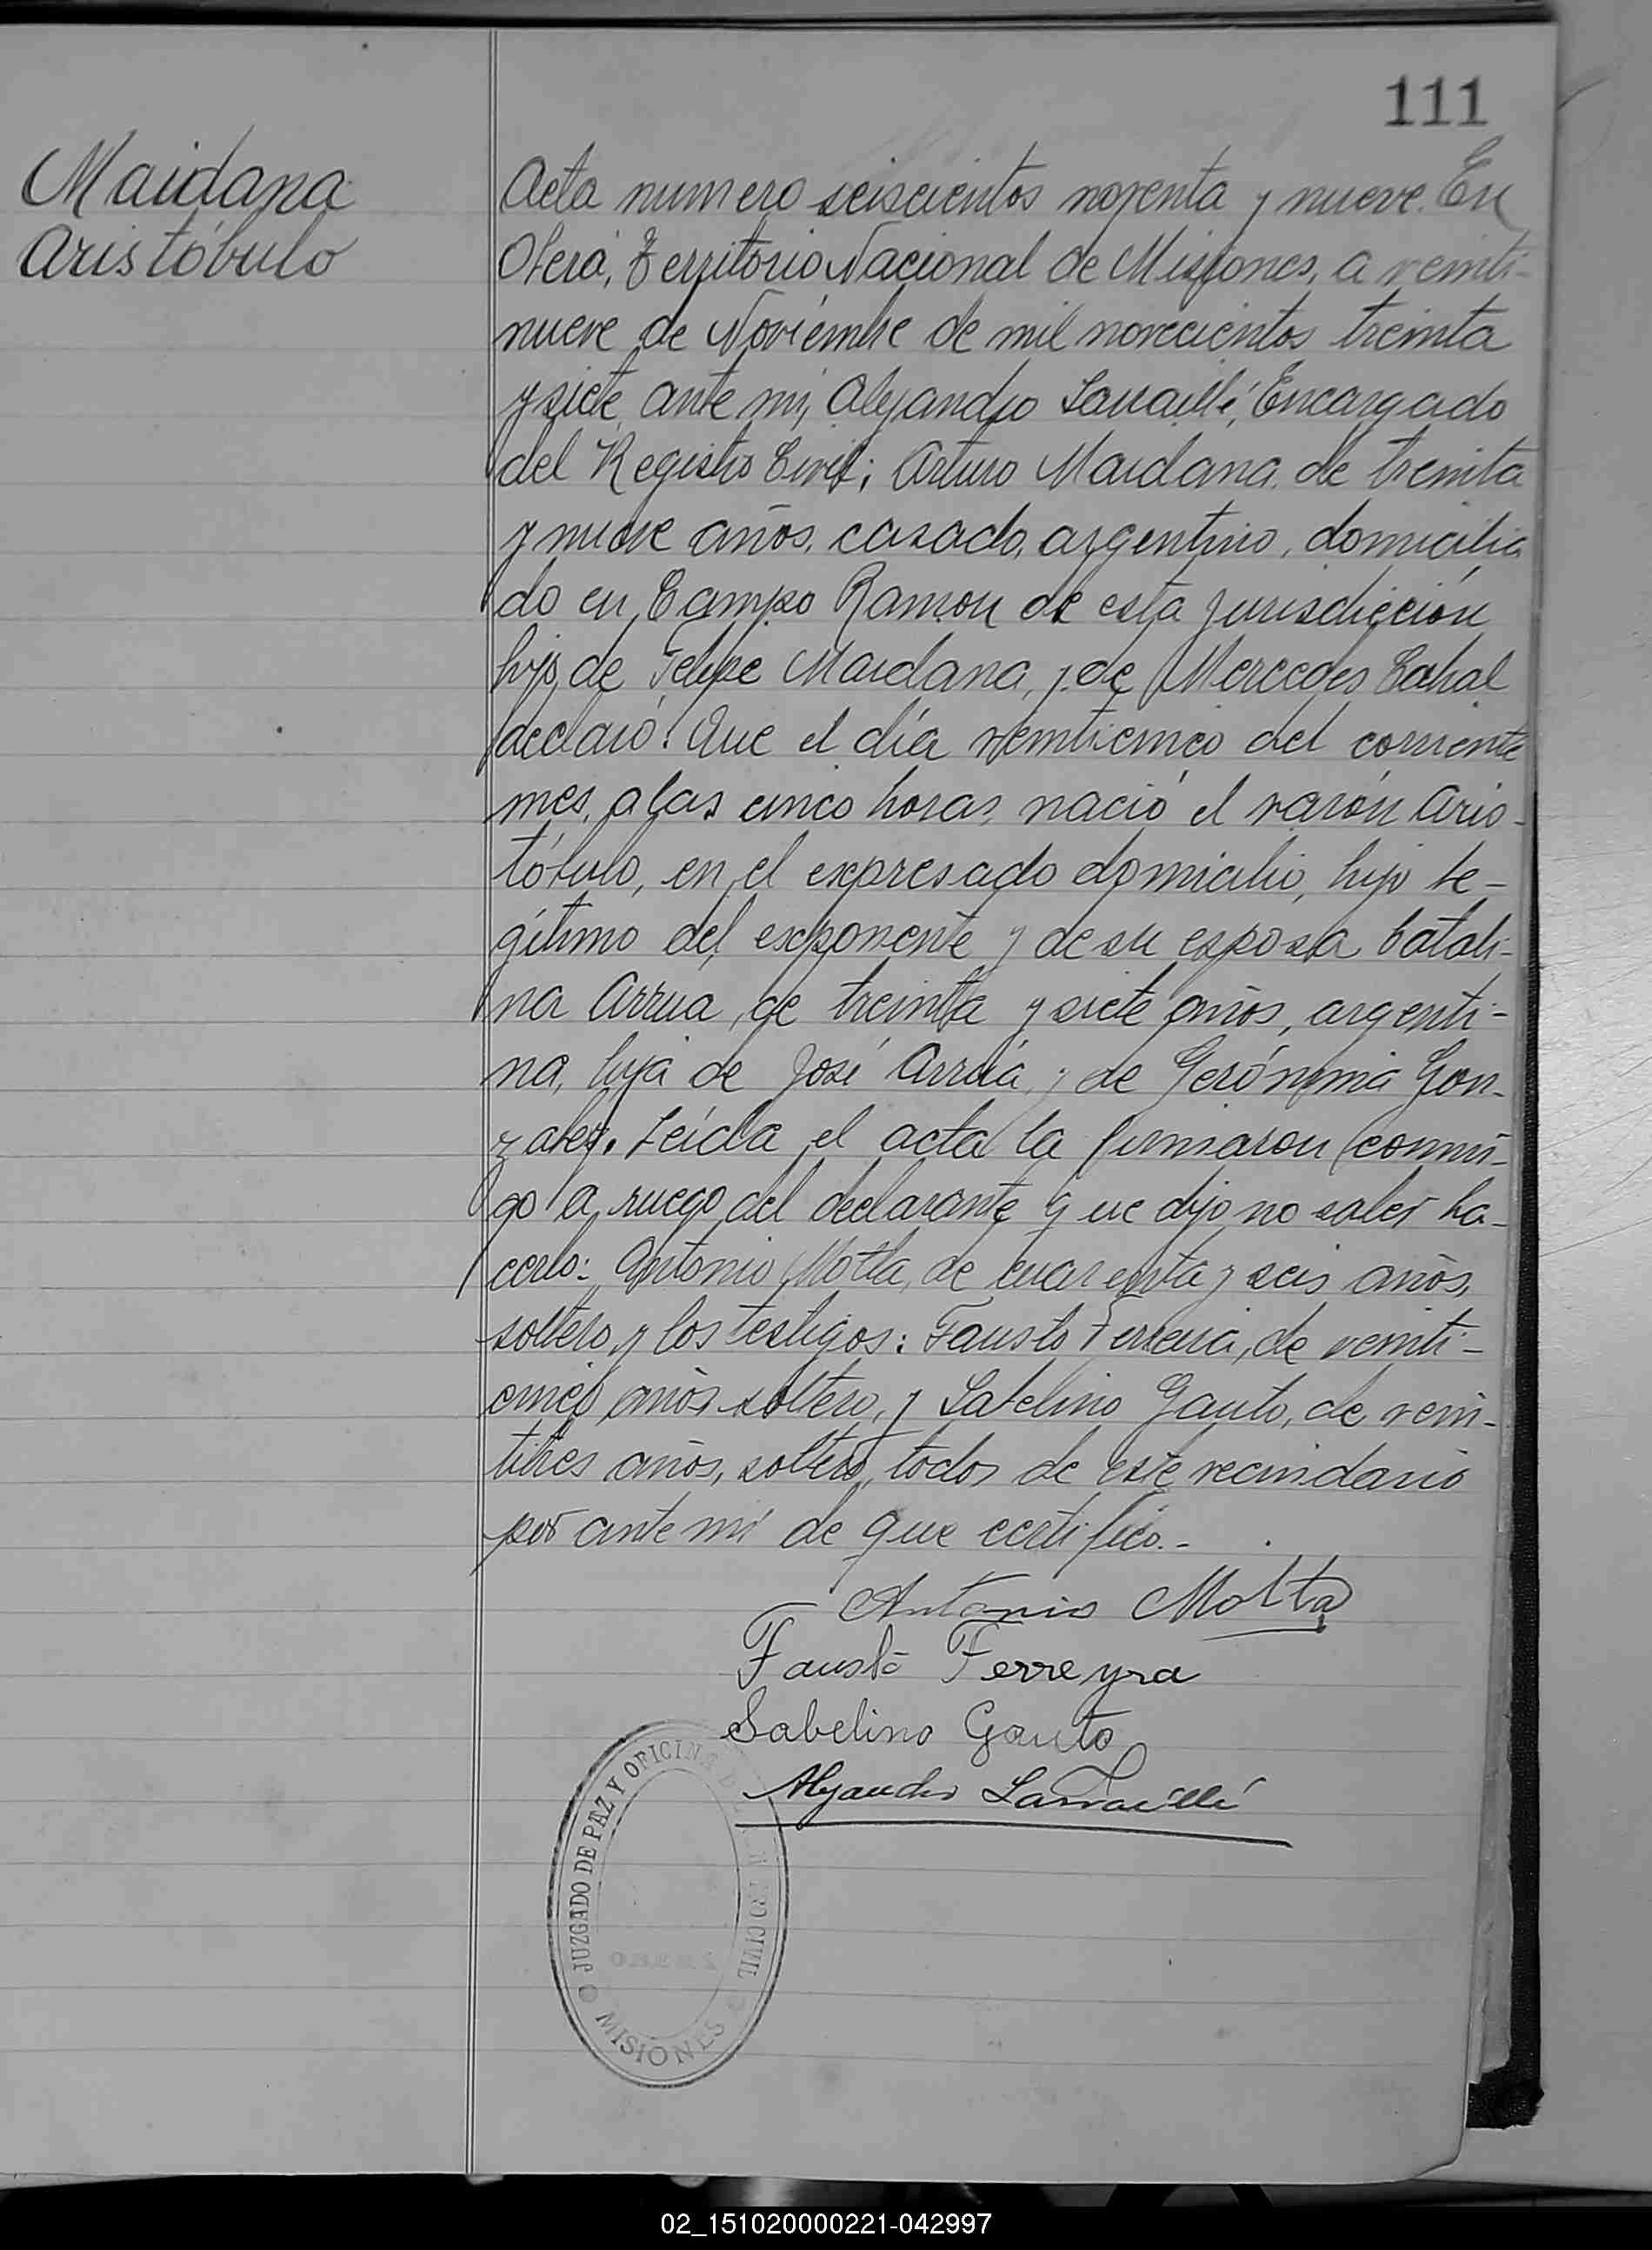 111
Maidana
Aristóbulo
Acta numero seiscientos noventa y nueve. En
Oberá, Territorio Nacional de Misiones, a veinti-
nueve de Noviembre de mil novecientos treinta
y siete, ante mi, Alejandro Larraillé, Encargado
del Registro Civil; Arturo Maidana, de treinta
y nueve años, casado, argentino, domicilia
do en Campo Ramon de esta jurisdicción
hijo de Felipe Maidana, y de Mercedes Cabral
declaró: Que el día veinticinco del corriente
mes, a las cinco horas, nació el varón Aris-
tóbulo, en el expresado domicilio, hijo le-
gítimo del exponente y de su esposa Catali-
na Arrua, de treinta y siete años, argenti-
na, hija de José Arrúa, y de Gerónima Gon-
zalez. Leída el acta la firmaron conmi-
go a ruego del declarante que dijo no saber ha-
cerlo: Antonio Motta, de cuarenta y seis años,
soltero y los testigos: Fausto Ferreira, de veinti-
cinco años soltero, y Sabelino Gauto, de vein-
titres años, soltero, todos de este vecindario
por ante mí de que certifico.-
Antonio Motta
Fausto Ferreyra
Sabelino Gauto
Alejandro Larraillé
JUZGADO DE PAZ Y OFICINA DEL REGISTRO CIVIL
OBERA
MISIONES
02_151020000221-042997